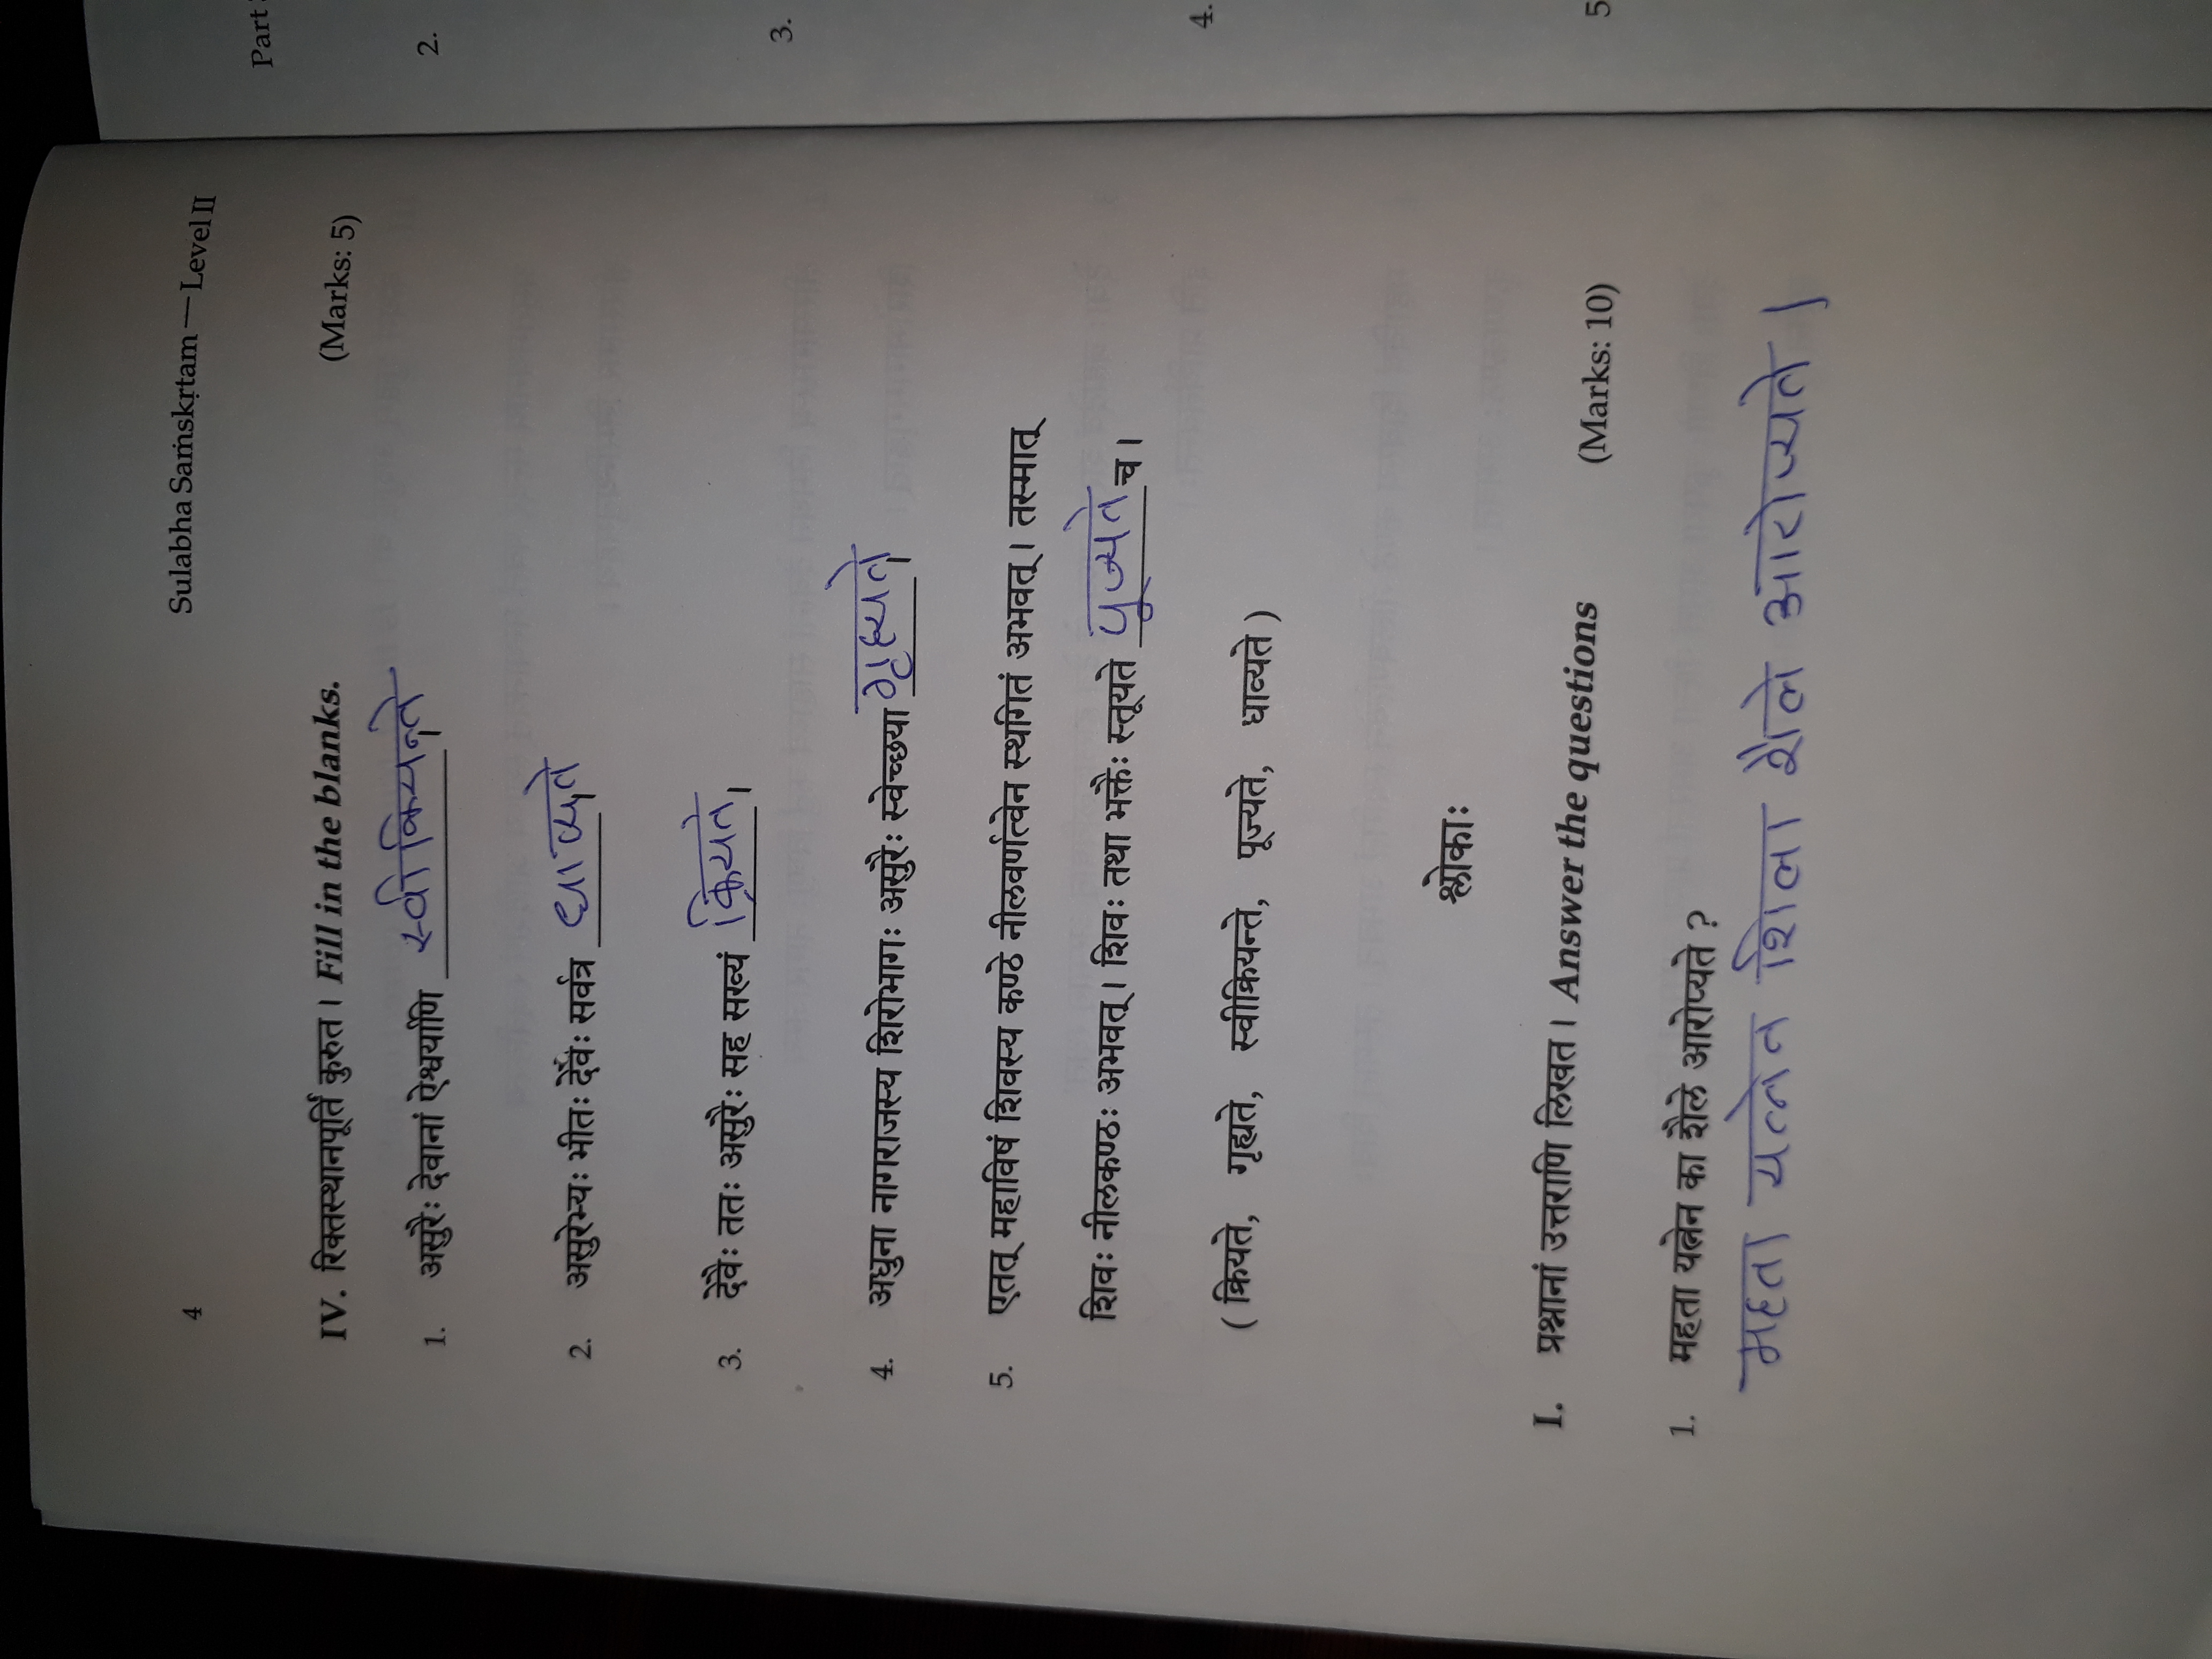 4
Sulabha Saṁskṛtam — Level II
IV. रिक्तस्थानपूर्तिं कुरुत। Fill in the blanks. (Marks: 5)
1. असुरैः देवानां ऐश्वर्याणि स्वीकियन्ते।
2. असुरेभ्यः भीतः देवैः सर्वत्र धाव्यते।
3. देवैः ततः असुरैः सह सख्यं क्रियते।
4. अधुना नागराजस्य शिरोभागः असुरैः स्वेच्छया गृह्यते।
5. एतत् महाविषं शिवस्य कण्ठे नीलवर्णत्वेन स्थगितं अभवत्। तस्मात्
शिवः नीलकण्ठः अभवत्। शिवः तथा भक्तैः स्तूयते पूज्यते च।
( क्रियते, गृह्यते, स्वीक्रियन्ते, पूज्यते, धाव्यते )
श्लोकाः
I. प्रश्नानां उत्तराणि लिखत। Answer the questions (Marks: 10)
1. महता यत्नेन का शैले आरोप्यते ?
महता यत्नेन शिला शैले आरोप्यते।
Part
2.
3.
4.
5